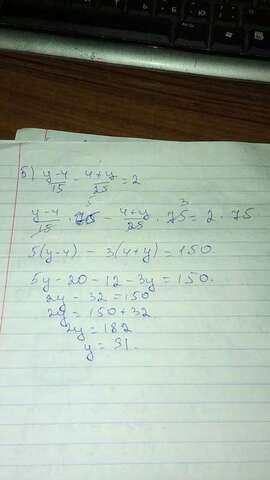 б) y-4/15 - 4+y/25 = 2
y-4/15 · 75 5 - 4+y/25 · 75 3 = 2 · 75
5(y-4) - 3(4+y) = 150
5y - 20 - 12 - 3y = 150.
2y - 32 = 150
2y = 150 + 32
2y = 182
y = 91.